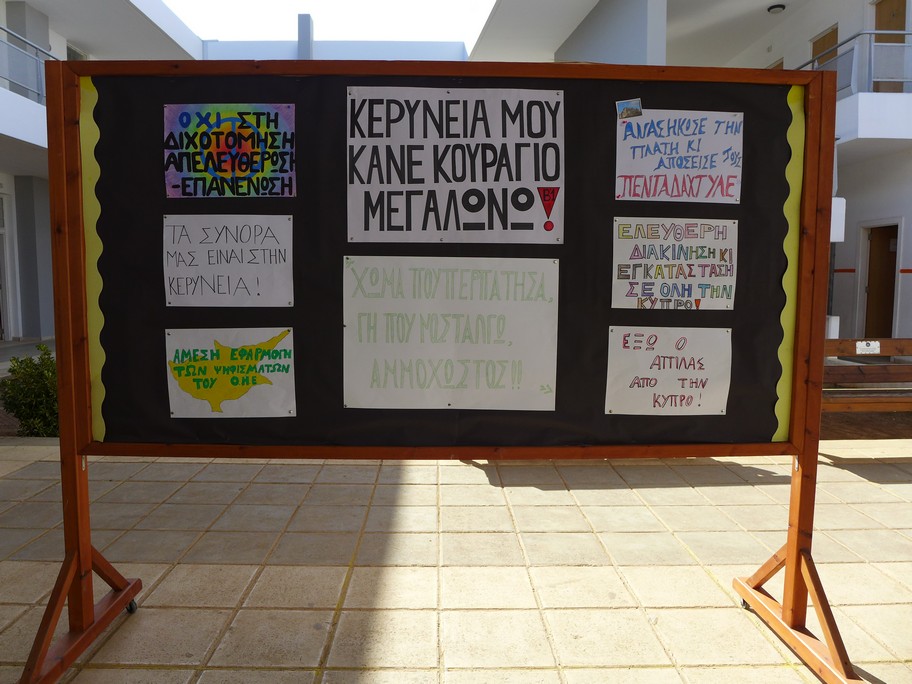 ΟΧΙ ΣΤΗ
ΔΙΧΟΤΟΜΗΣΗ
ΑΠΕΛΕΥΘΕΡΩΣΗ
-ΕΠΑΝΕΝΩΣΗ
ΤΑ ΣΥΝΟΡΑ
ΜΑΣ ΕΙΝΑΙ ΣΤΗΝ
ΚΕΡΥΝΕΙΑ!
ΑΜΕΣΗ ΕΦΑΡΜΟΓΗ
ΤΩΝ ΨΗΦΙΣΜΑΤΩΝ
ΤΟΥ ΟΗΕ
ΚΕΡΥΝΕΙΑ ΜΟΥ
ΚΑΝΕ ΚΟΥΡΑΓΙΟ
ΜΕΓΑΛΩΝΩ!
Β1
"ΧΩΜΑ ΠΟΥ ΠΕΡΠΑΤΗΣΑ,
ΓΗ ΠΟΥ ΝΟΣΤΑΛΓΩ,
ΑΜΜΟΧΩΣΤΟΣ!!"
ΑΝΑΣΗΚΩΣΕ ΤΗΝ
ΠΛΑΤΗ ΚΙ
ΑΠΟΣΕΙΣΕ ΤΟΥΣ
ΠΕΝΤΑΔΑΧΤΥΛΕ
ΕΛΕΥΘΕΡΗ
ΔΙΑΚΙΝΗΣΗ ΚΙ
ΕΓΚΑΤΑΣΤΑΣΗ
ΣΕ ΟΛΗ ΤΗΝ
ΚΥΠΡΟ!
ΕΞΩ Ο
ΑΤΤΙΛΑΣ
ΑΠΟ ΤΗΝ
ΚΥΠΡΟ!